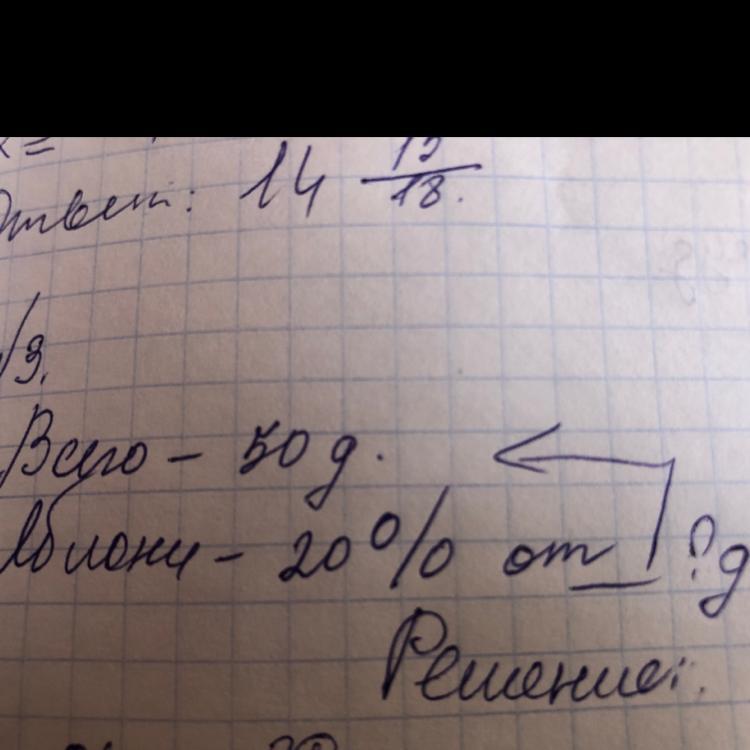 x=
Ответ: 14 15/18.
/3.
Всего – 50 д.
Яблони – 20% от ? д
Решение: